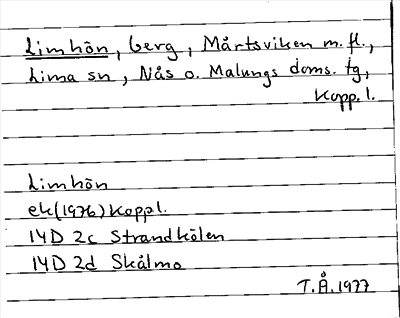 Limhön, berg, Mårtsviken m.fl.,
Lima sn, Nås o. Malungs doms. tg,
Kopp. l.
Limhön
ek(1976) Kopp l.
14D 2c Strandkölen
14D 2d Skålmo
T.Å. 1977